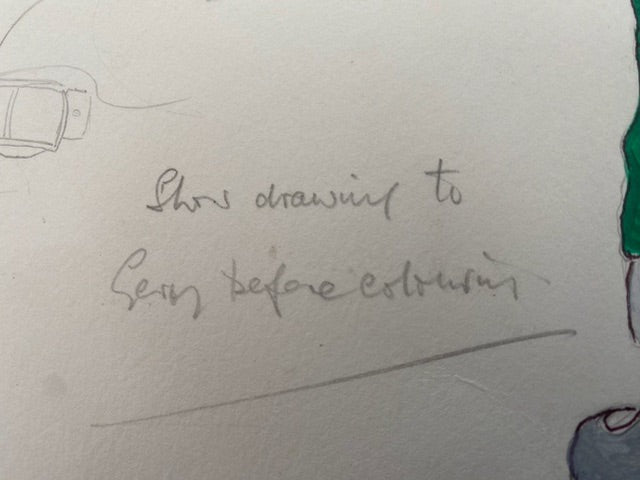 Show drawing to
Gerry before colouring